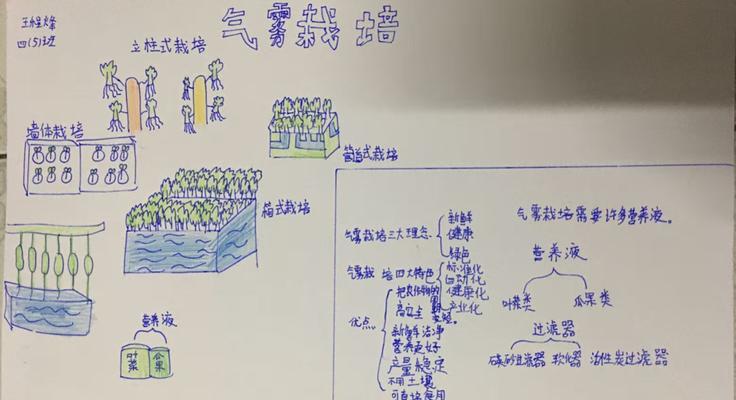 气雾栽培
四(5)班
立柱式栽培
墙体栽培
箱式栽培
营养液
叶菜
瓜果
气雾栽培三大理念
新鲜
健康
绿色
气雾栽 培四大特色
标准化
自动化
健康化
产业化
优点
高安全
新鲜洁净
营养更好
产量稳定
不用土壤
可直接食用
气雾栽培需要许多营养液。
营养液
叶菜类
瓜果类
过滤器
石英砂过滤器 软化器 活性炭过滤器